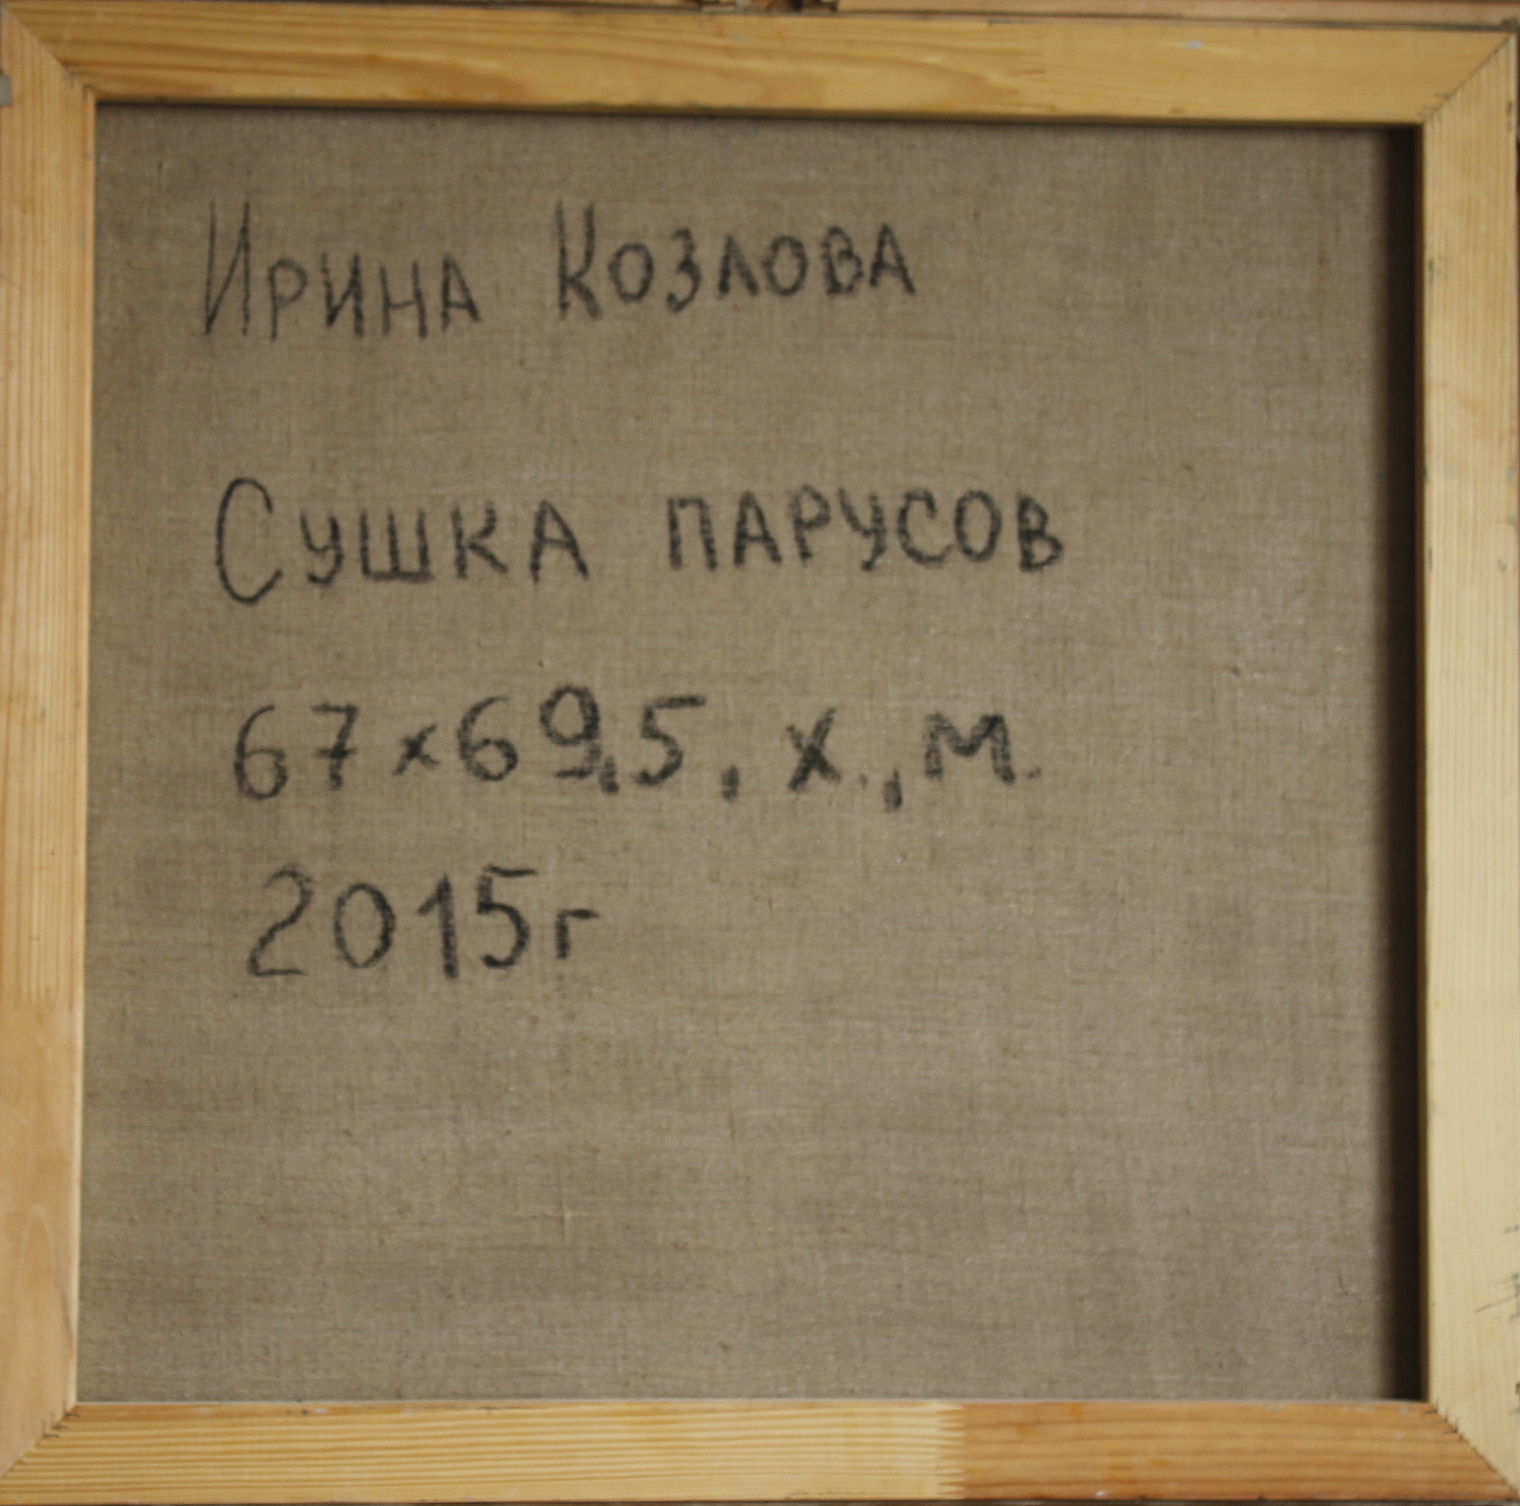 Ирина Козлова
Сушка парусов
67×69,5, х., м.
2015г